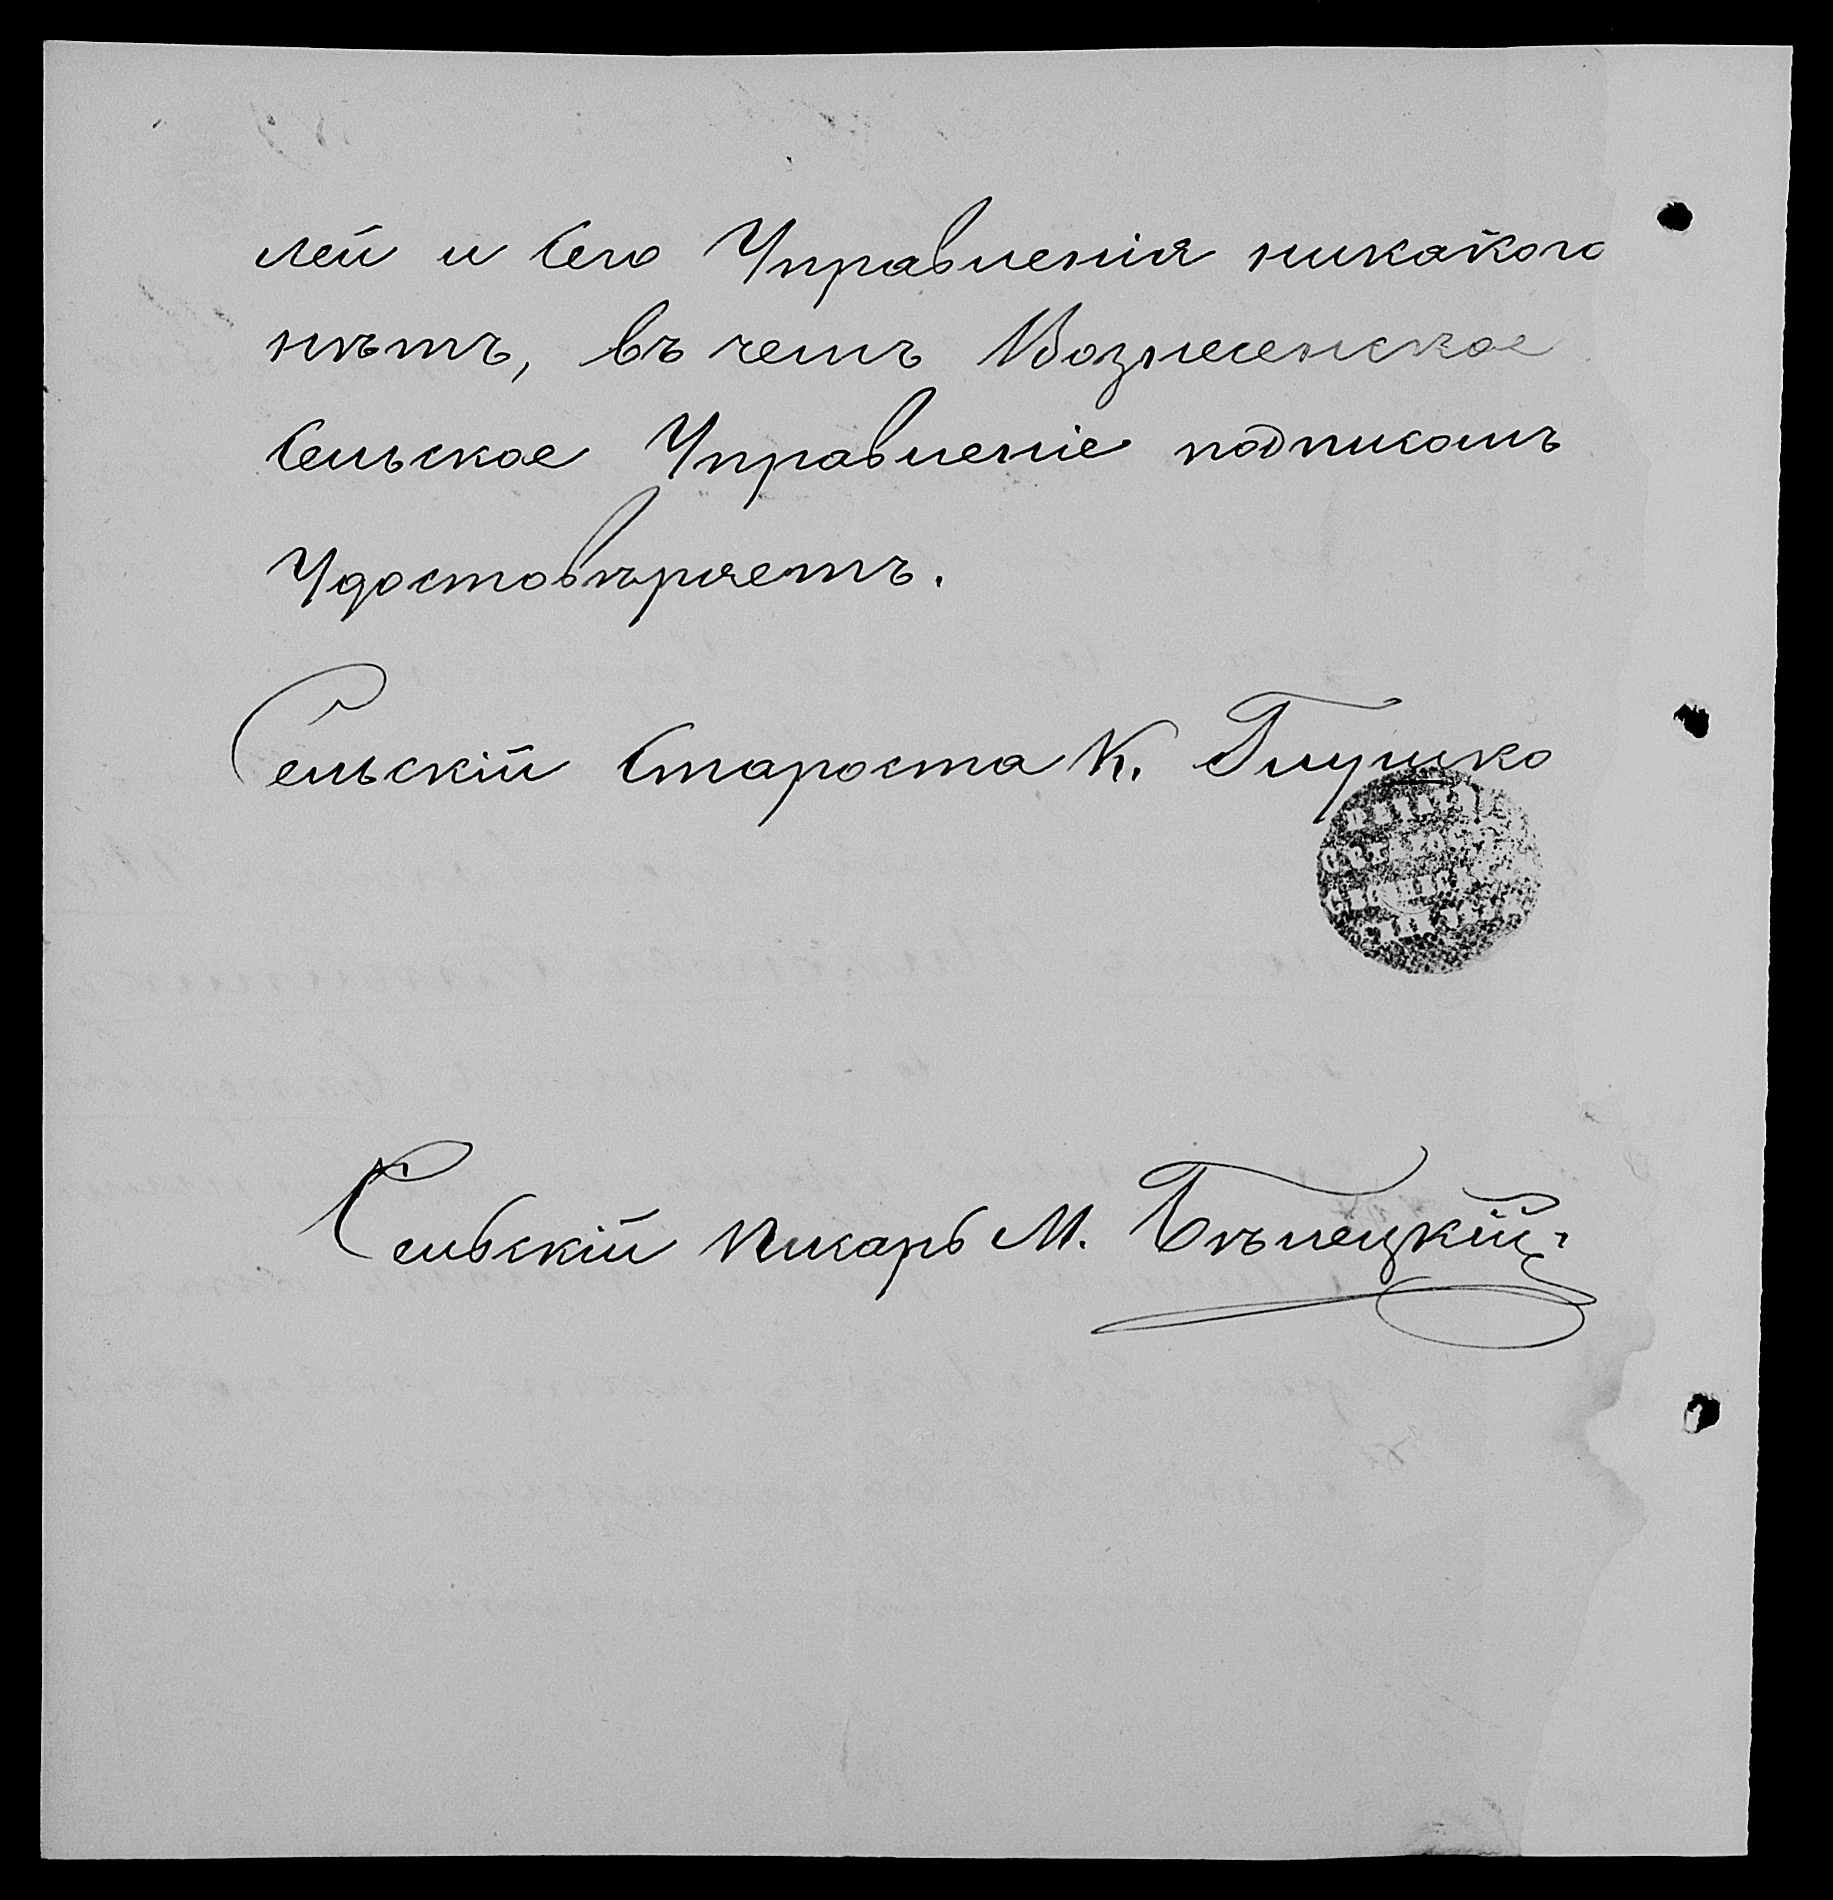 лей и Сего Управленія никакого
нѣтъ, въ чемъ Вознесенское
Сельское Управленіе подписомъ
Удостовѣряетъ.
Сельскій Староста К. Глушко
Сельскій Писарь М. Бѣлецкій